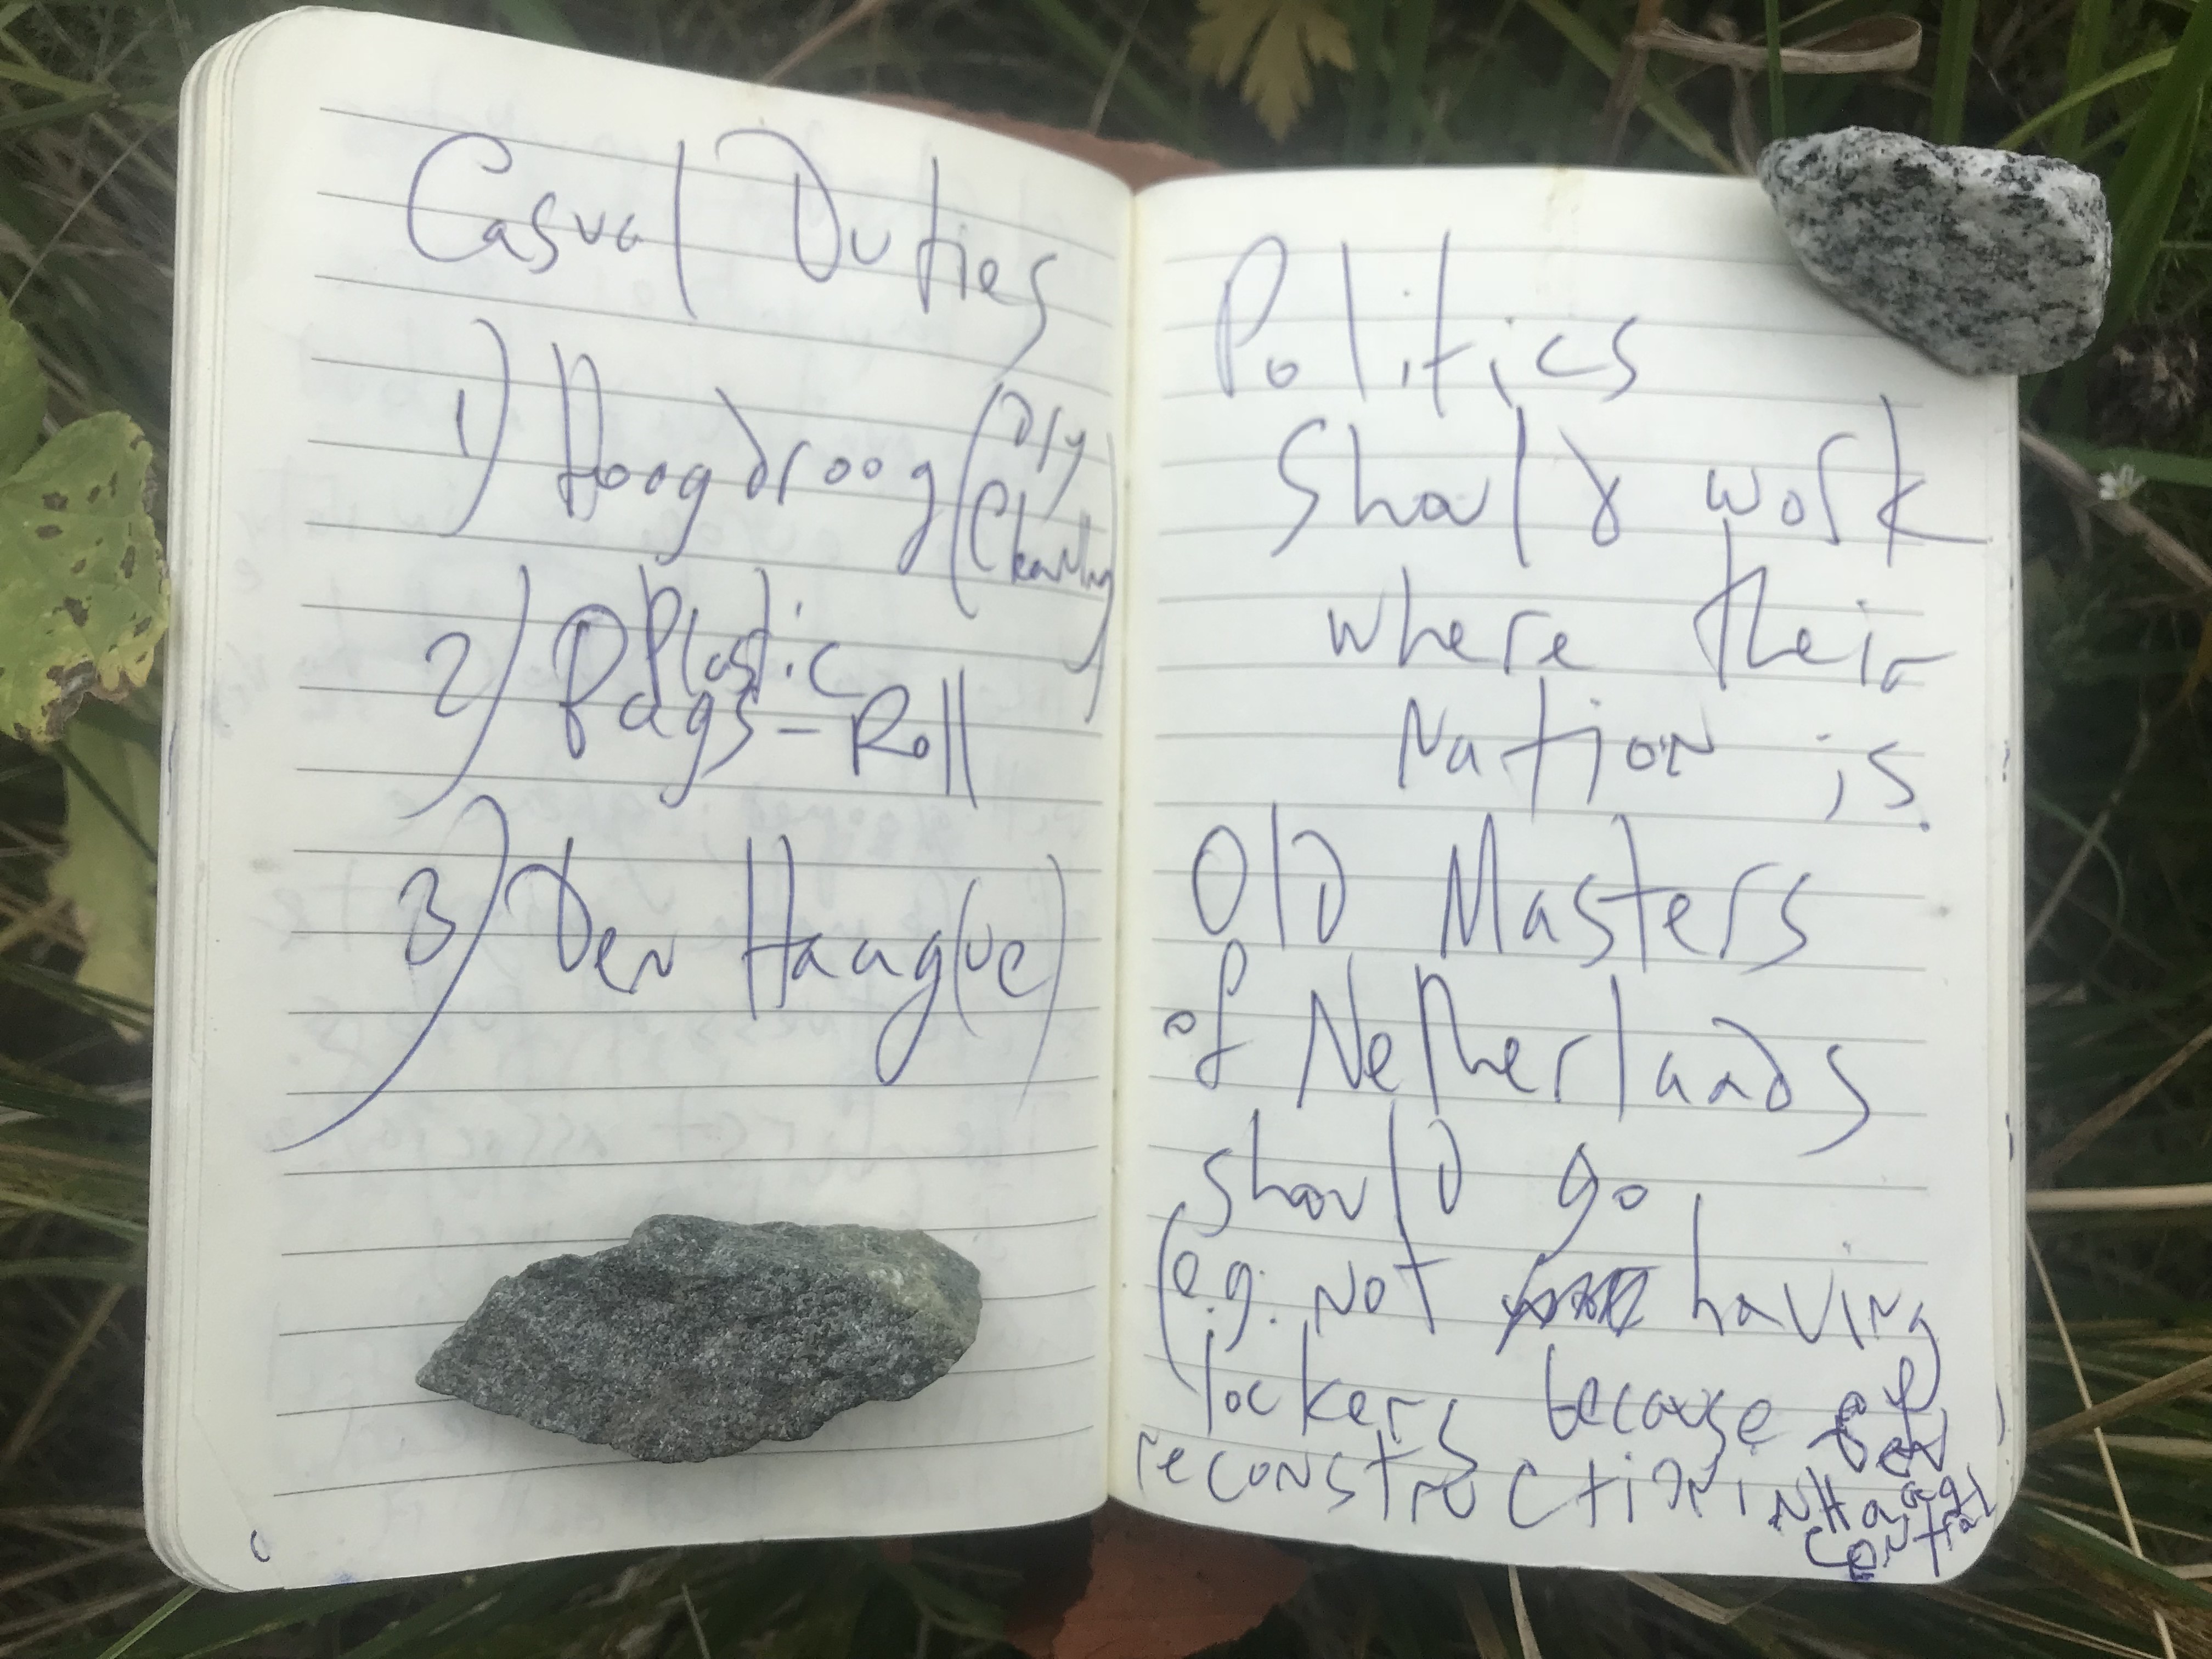 Casual Duties
1) Hoogdroog (Dry
Cleaning)
2) Plastic
Bags - Roll
3) Den Haag(ue)
Politics
Should work
where their
Nation is.
Old Masters
of Netherlands
should go
(e.g. not having
lockers because of
reconstruction in Den
Haag
Central)